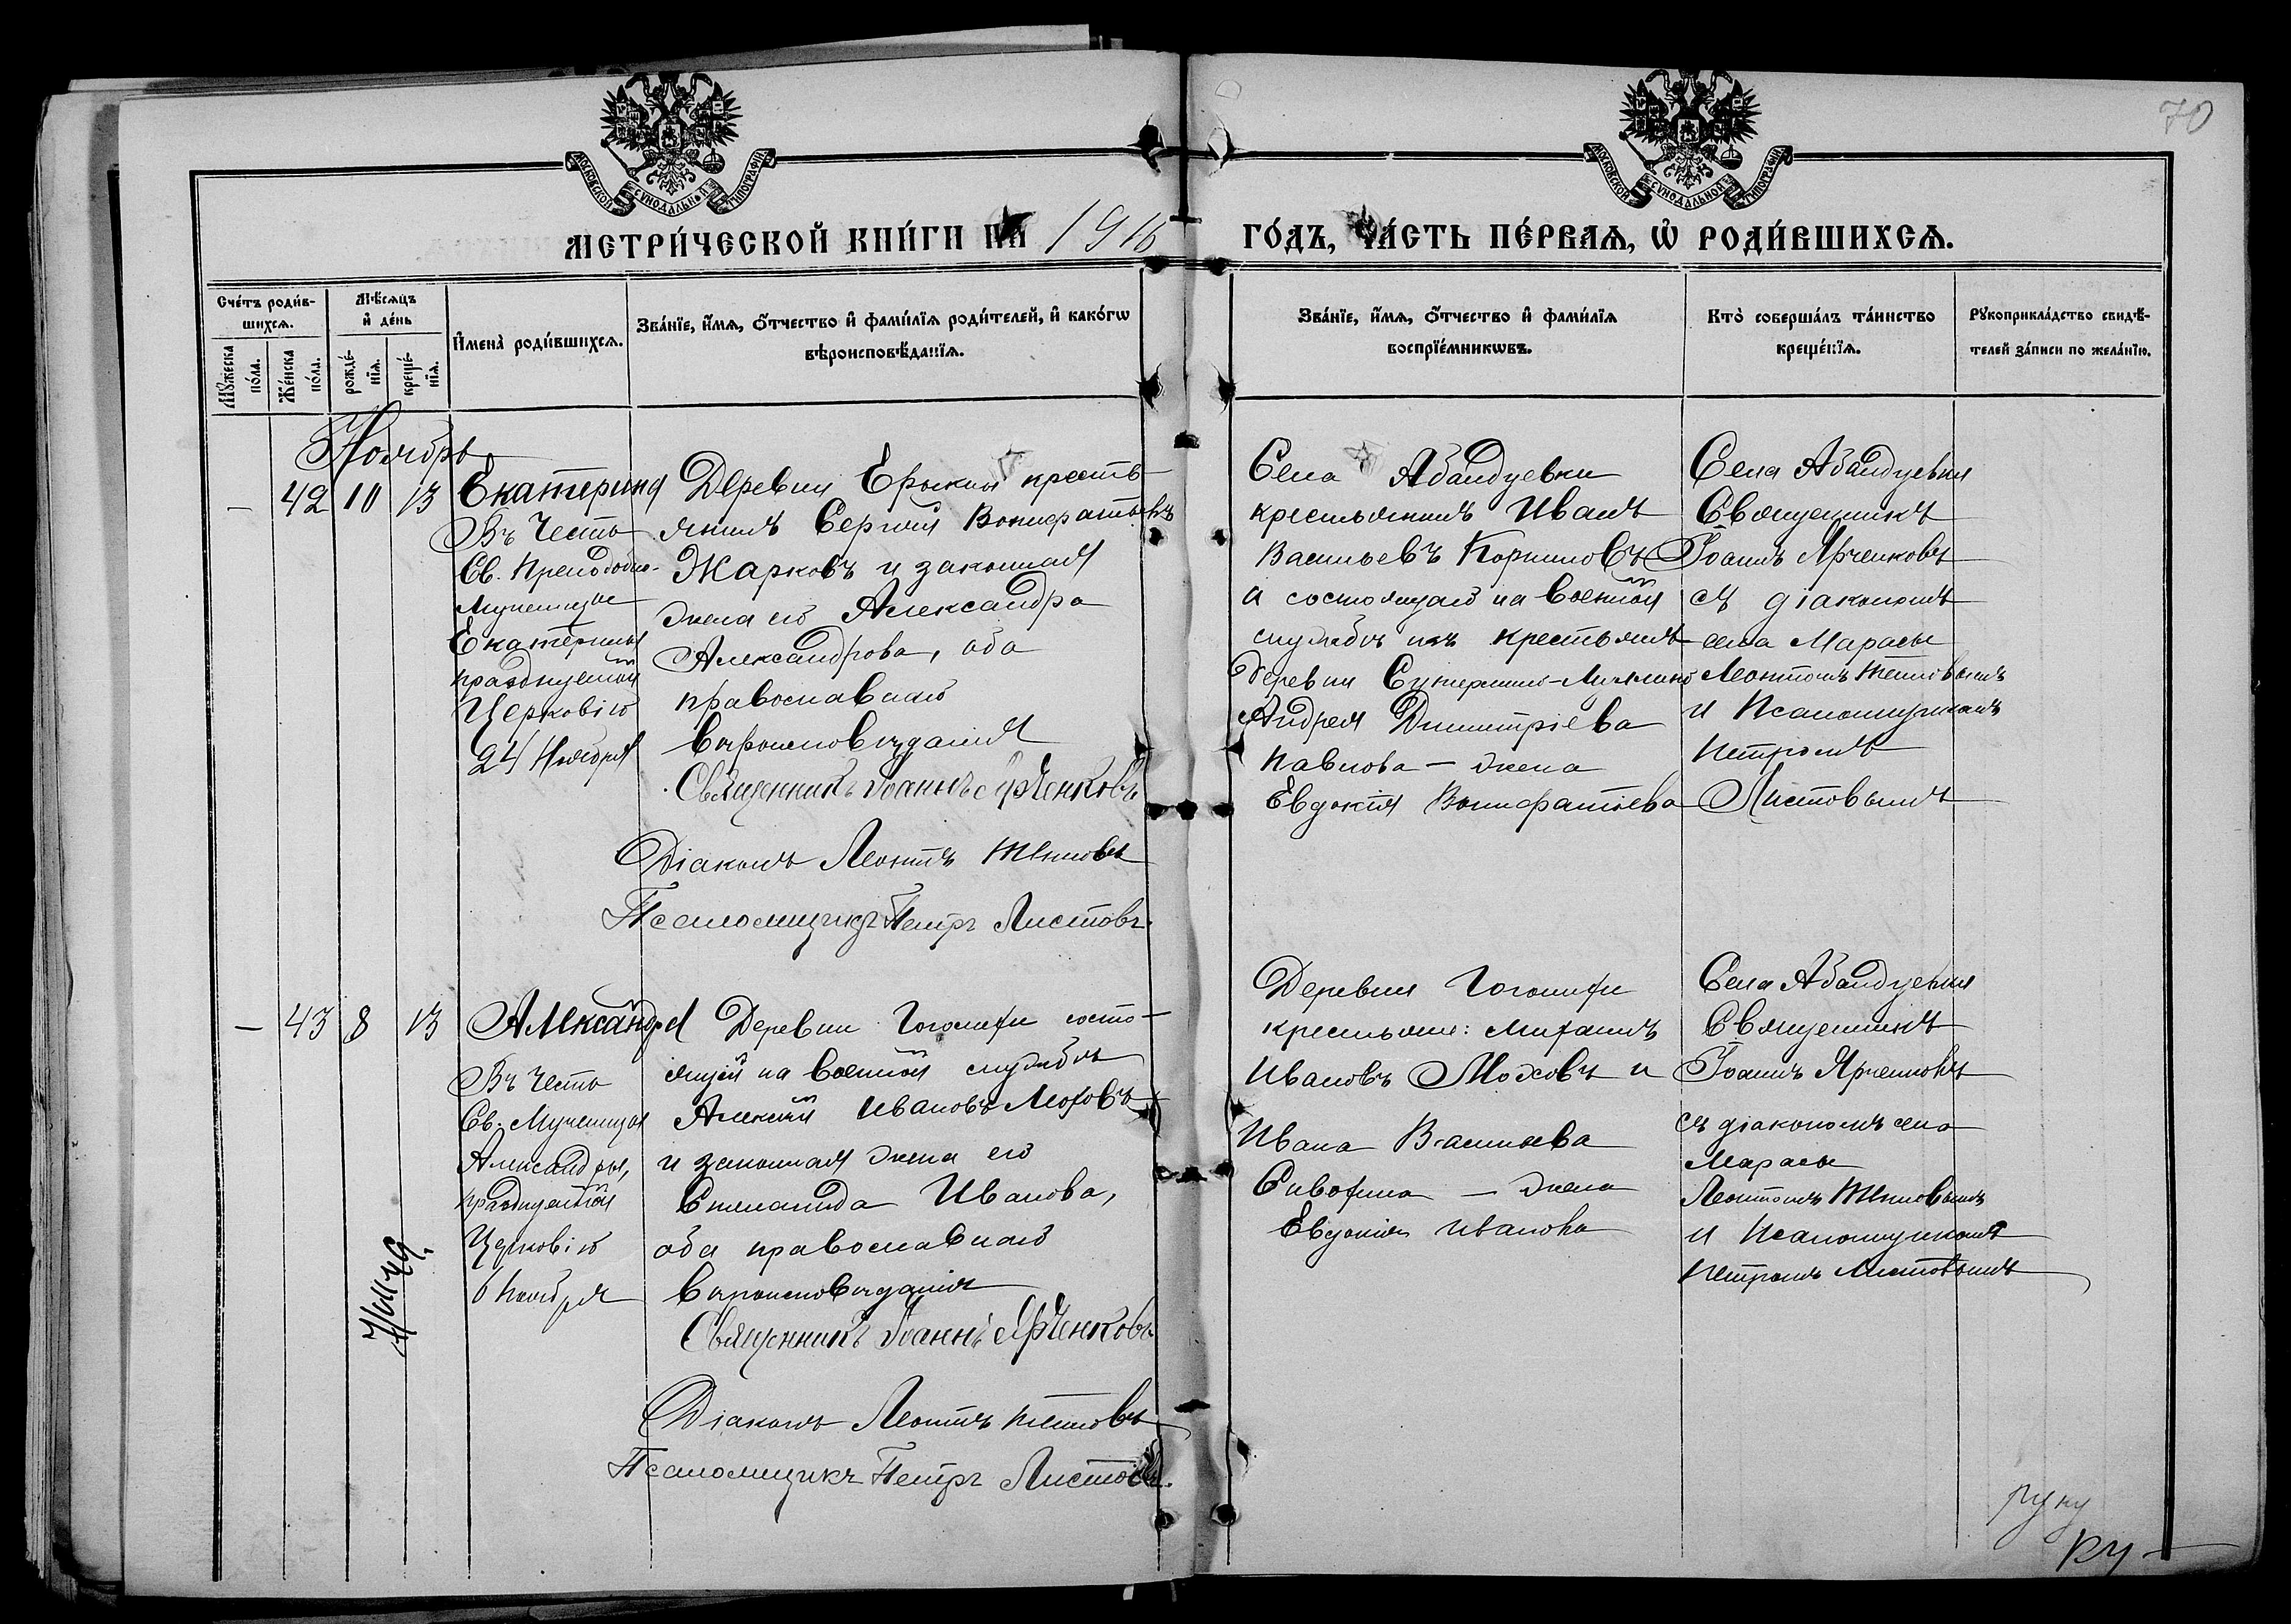 70
МОСКОВСКОЙ СѴНОДАЛЬНОЙ ТИПОГРАФІИ
МОСКОВСКОЙ СѴНОДАЛЬНОЙ ТИПОГРАФІИ
МЕТРИ́ЧЕСКОЙ КНИ́ГИ НА 1916
ГО́ДЪ, ЧА́СТЬ ПЕ́РВАѦ, Ѡ҆ РОДИ́ВШИХСѦ.
Сче́тъ роди́в-
шихсѧ.
Мꙋжеска по́ла.
Же́нска по́ла.
Мѣ́сѧцъ
и҆ де́нь
рожде́-
нїѧ.
креще́-
нїѧ.
И҆мена̀ роди́вшихсѧ.
Зва́нїе, и҆́мѧ, ѻ҆́тчество и҆ фами́лїѧ роди́телей, и҆ како́гѡ
вѣроисповѣ́данїѧ.
Зва́нїе, и҆́мѧ, ѻ҆́тчество и҆ фами́лїѧ
воспрїе́мникѡвъ.
Кто̀ соверша́лъ та́инство
креще́нїѧ.
Рꙋкоприкла́дство свидѣ́-
телей за́писи по жела́нїю.
Ноябрь
— 42 10 13
Екатерина
Въ честь
Св. Преподобно-
Мученицы
Екатерины
празднуемой
Церковію
24 Ноября
Деревни кресть-
янинъ Сергѣй Вонифатьевъ
Жарковъ и законная
жена его Александра
Александрова, оба
православнаго
вѣроисповѣданія
Священникъ Іоаннъ Ярченковъ
Діаконъ Леонтій Тепловъ
Псаломщикъ Петръ Листовъ.
Села Абандуевки
крестьянинъ Иванъ
Васильевъ Корниловъ
и состоящаго на военной
службѣ изъ крестьянъ
деревни
Андрея Димитріева
Павлова — жена
Евдокія Вонифатьева
Села Абандуевки
Священникъ
Іоаннъ Ярченковъ
съ діакономъ
села Марасы
Леонтіемъ Тепловымъ
и Псаломщикомъ
Петромъ
Листовымъ
— 43 8 13
Александра
Въ честь
Св. Мученицы
Александры,
празднуемой
Церковію
6 Ноября
Деревни Гоголихи состо-
ящій на военной службѣ
Алексѣй Ивановъ Моховъ
и законная жена его
Степанида Иванова,
оба православнаго
вѣроисповѣданія
Священникъ Іоаннъ Ярченковъ
Діаконъ Леонтій Тепловъ
Псаломщикъ Петръ Листовъ.
Деревни Гоголихи
крестьяне: Михаилъ
Ивановъ Моховъ и
Ивана Васильева
Сивохина — жена
Евдокія Иванова
Села Абандуевки
Священникъ
Іоаннъ Ярченковъ
съ діакономъ села
Марасы
Леонтіемъ Тепловымъ
и Псаломщикомъ
Петромъ Листовымъ
руку
ру—